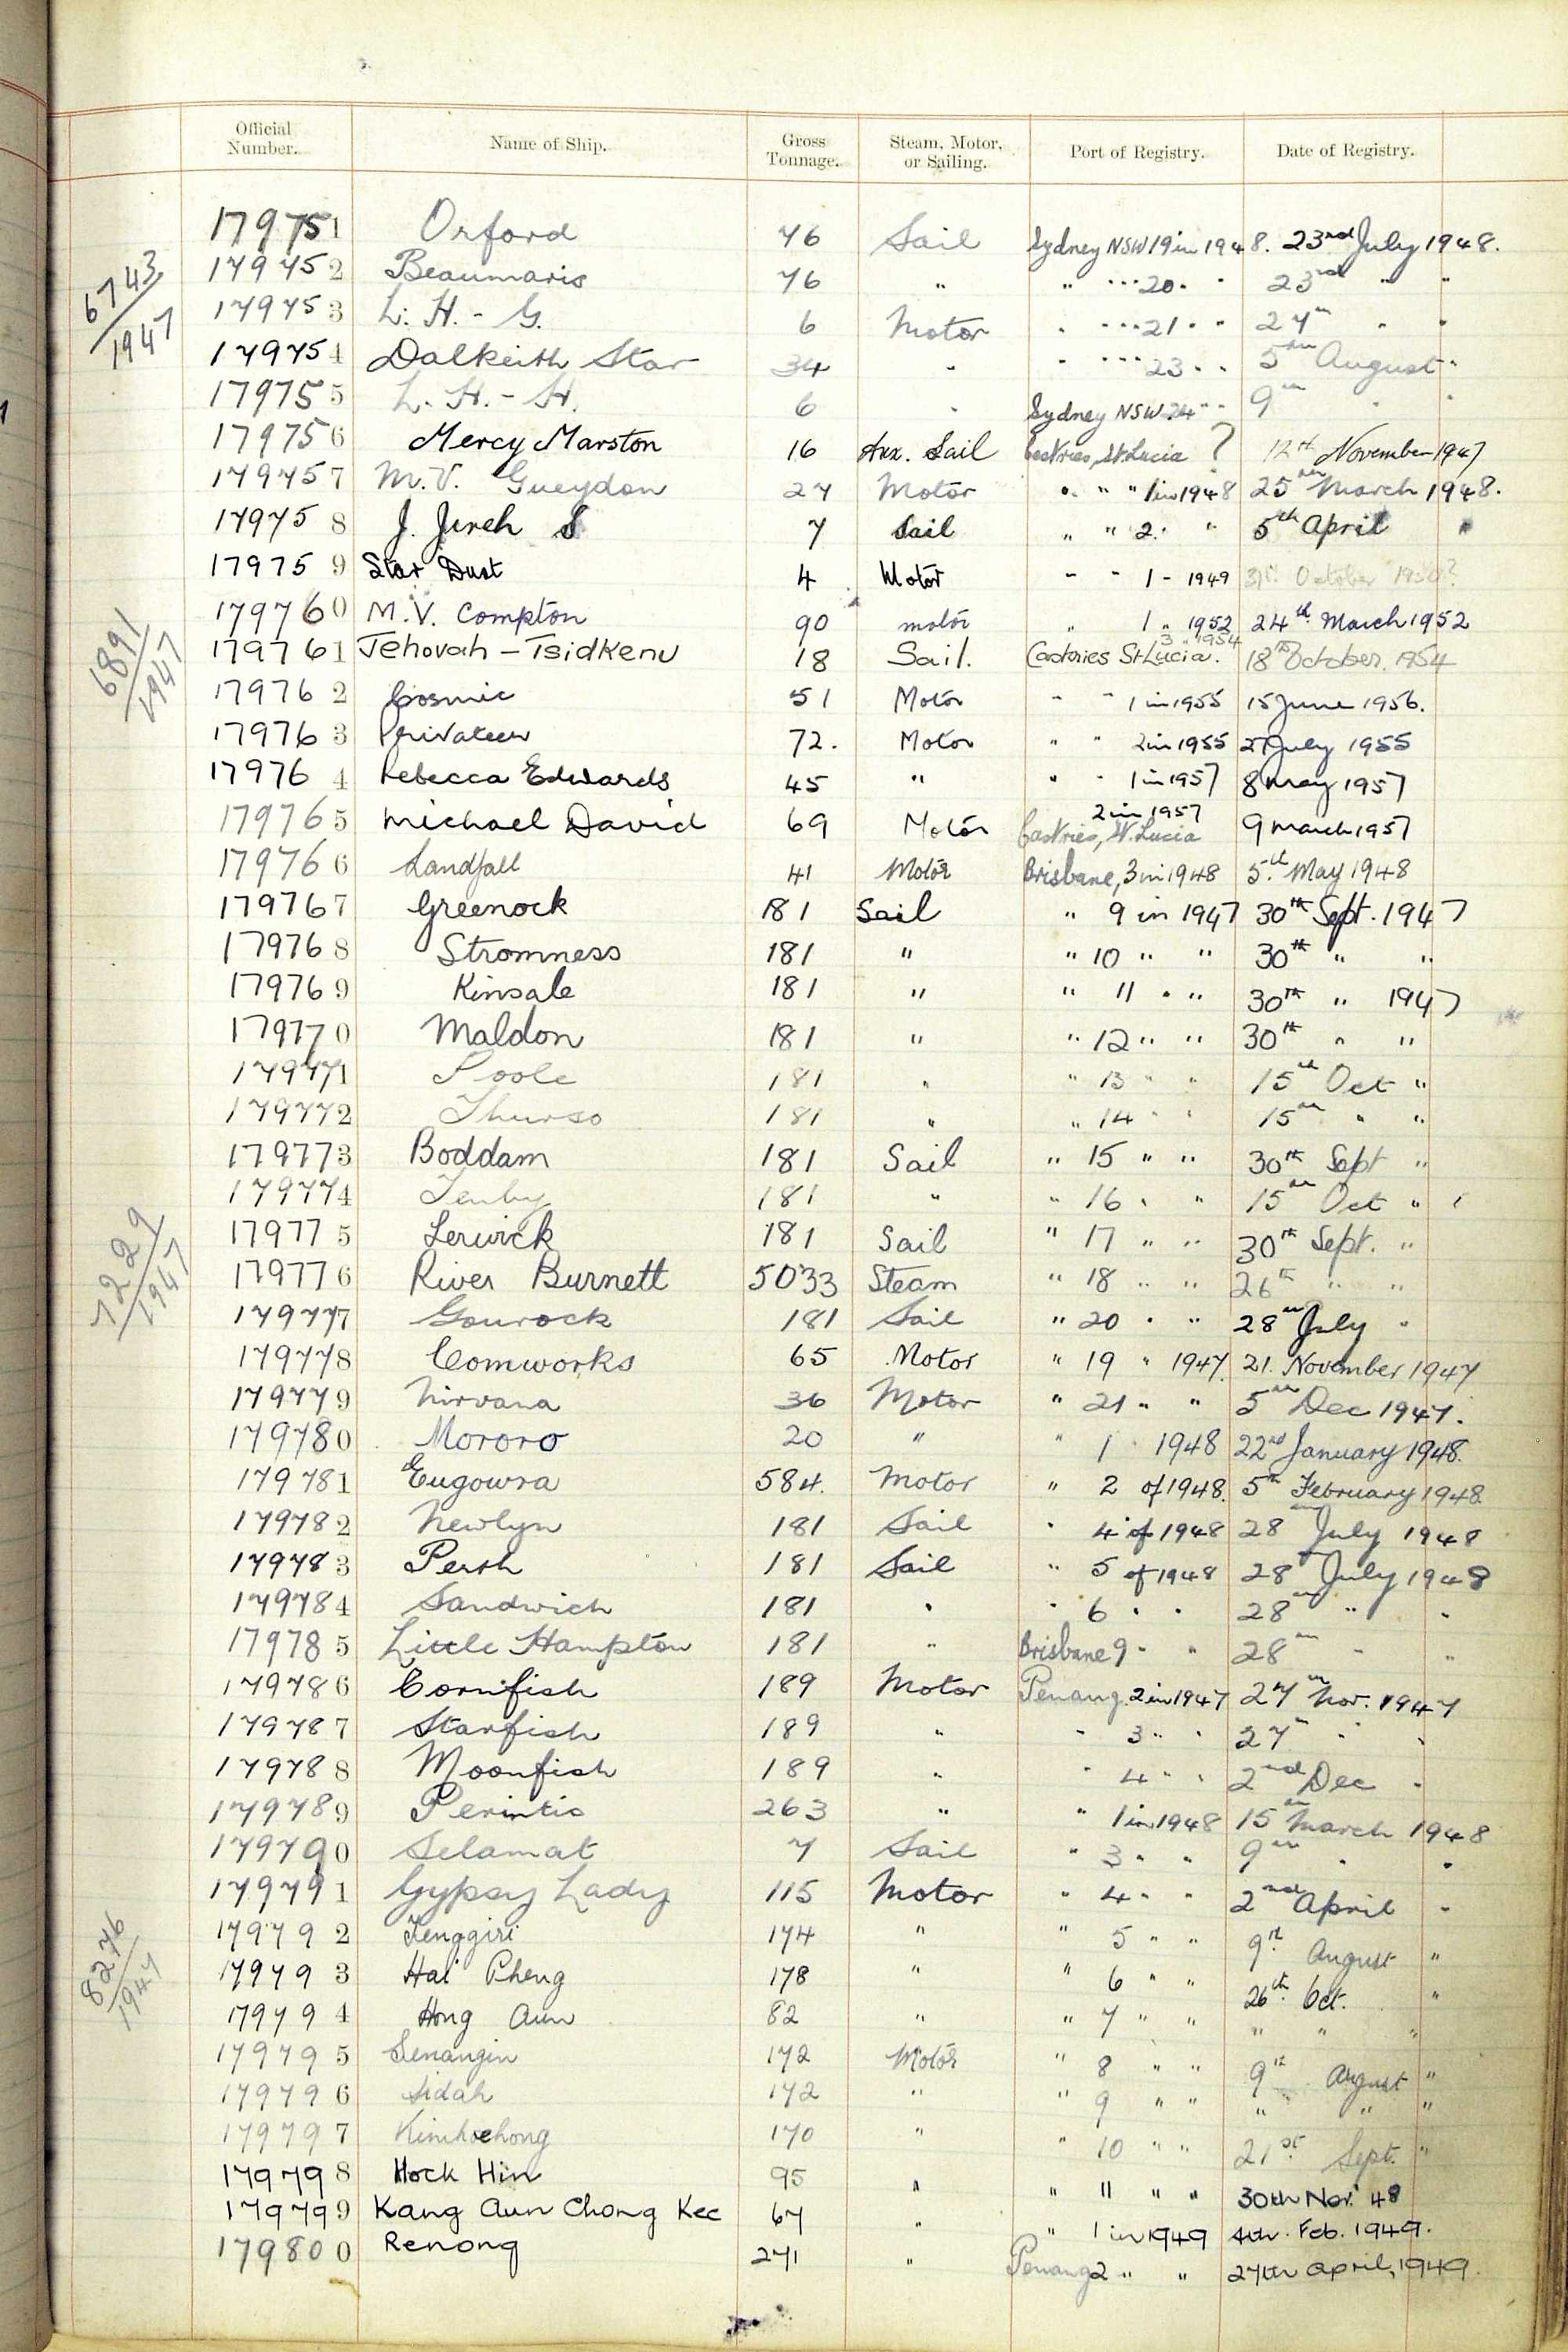 Official Number. Name of Ship. Gross Tonnage. Steam, Motor, or Sailing. Port of Registry. Date of Registry.
179751 Orford 76 Sail Sydney NSW 19 in 1948. 23rd July 1948.
6743/1947
179752 Beaumaris 76 " " " 20 " " 23rd " "
179753 L. H. - G. 6 Motor " " 21 " " 27th " "
179754 Dalkeith Star 34 " " " 23 " " 5th August "
179755 L. H. - H. 6 " Sydney NSW 24 " " 9th " "
179756 Mercy Marston 16 Aux. Sail Castries, St. Lucia ? 12th November 1947
179757 M.V. Gueydon 27 Motor " " " 1 in 1948 25th March 1948.
179758 J. Jireh S 7 Sail " " 2 " " 5th April "
179759 Star Dust 4 Motor " " 1 - 1949 31st October 1950?
179760 M.V. Compton 90 motor " 1 " 1952 24th March 1952
6891/1947
179761 Jehovah - Tsidkenu 18 Sail. Castries St Lucia. 3 " 1954 18th October. 1954
179762 Cosmic 51 Motor " " 1 in 1955 15 June 1956.
179763 Privateer 72. Motor " " 2 in 1955 27 July 1955
179764 Rebecca Edwards 45 " " " 1 in 1957 8 May 1957
179765 Michael David 69 Motor Castries, St. Lucia 2 in 1957 9 March 1957
179766 Landfall 41 Motor Brisbane, 3 in 1948 5th May 1948
179767 Greenock 181 Sail " 9 in 1947 30th Sept. 1947
179768 Stromness 181 " " 10 " " 30th " "
179769 Kinsale 181 " " 11 " " 30th " 1947
179770 Maldon 181 " " 12 " " 30th " "
179771 Poole 181 " " 13 " " 15th Oct "
179772 Thurso 181 " " 14 " " 15th " "
179773 Boddam 181 Sail " 15 " " 30th Sept "
179774 Tenby 181 " " 16 " " 15th Oct "
7229/1947
179775 Lerwick 181 Sail " 17 " " 30th Sept. "
179776 River Burnett 5033 Steam " 18 " " 26th " "
179777 Gourock 181 Sail " 20 " " 28th July "
179778 Comworks 65 Motor " 19 " 1947. 21. November 1947
179779 Nirvana 36 Motor " 21 " " 5th Dec 1947.
179780 Mororo 20 " " 1 " 1948 22nd January 1948.
179781 Eugowra 584. Motor " 2 of 1948. 5th February 1948.
179782 Newlyn 181 Sail " 4 of 1948 28th July 1948
179783 Perth 181 Sail " 5 of 1948 28th July 1948
179784 Sandwich 181 " " 6 " " 28th " "
179785 Little Hampton 181 " Brisbane 9 " " 28th " "
179786 Cornifish 189 Motor Penang. 2 in 1947 27th Nov. 1947
179787 Starfish 189 " " 3 " " 27th " "
179788 Moonfish 189 " " 4 " " 2nd Dec "
179789 Perintis 263 " " 1 in 1948 15th March 1948
179790 Selamat 7 Sail " 3 " " 9th " "
179791 Gypsy Lady 115 Motor " 4 " " 2nd April "
8276/1947
179792 Tenggiri 174 " " 5 " " 9th August "
179793 Hai Pheng 178 " " 6 " " 26th Oct. "
179794 Hong Aun 82 " " 7 " " " " "
179795 Senangin 172 Motor " 8 " " 9th August "
179796 Sidah 172 " " 9 " " " " "
179797 Kimhoehong 170 " " 10 " " 21st Sept. "
179798 Hock Hin 95 " " 11 " " 30th Nov. 48
179799 Kang Aun Chong Kee 67 " " 1 in 1949 4th. Feb. 1949.
179800 Renong 271 " Penang 2 " " 27th April, 1949